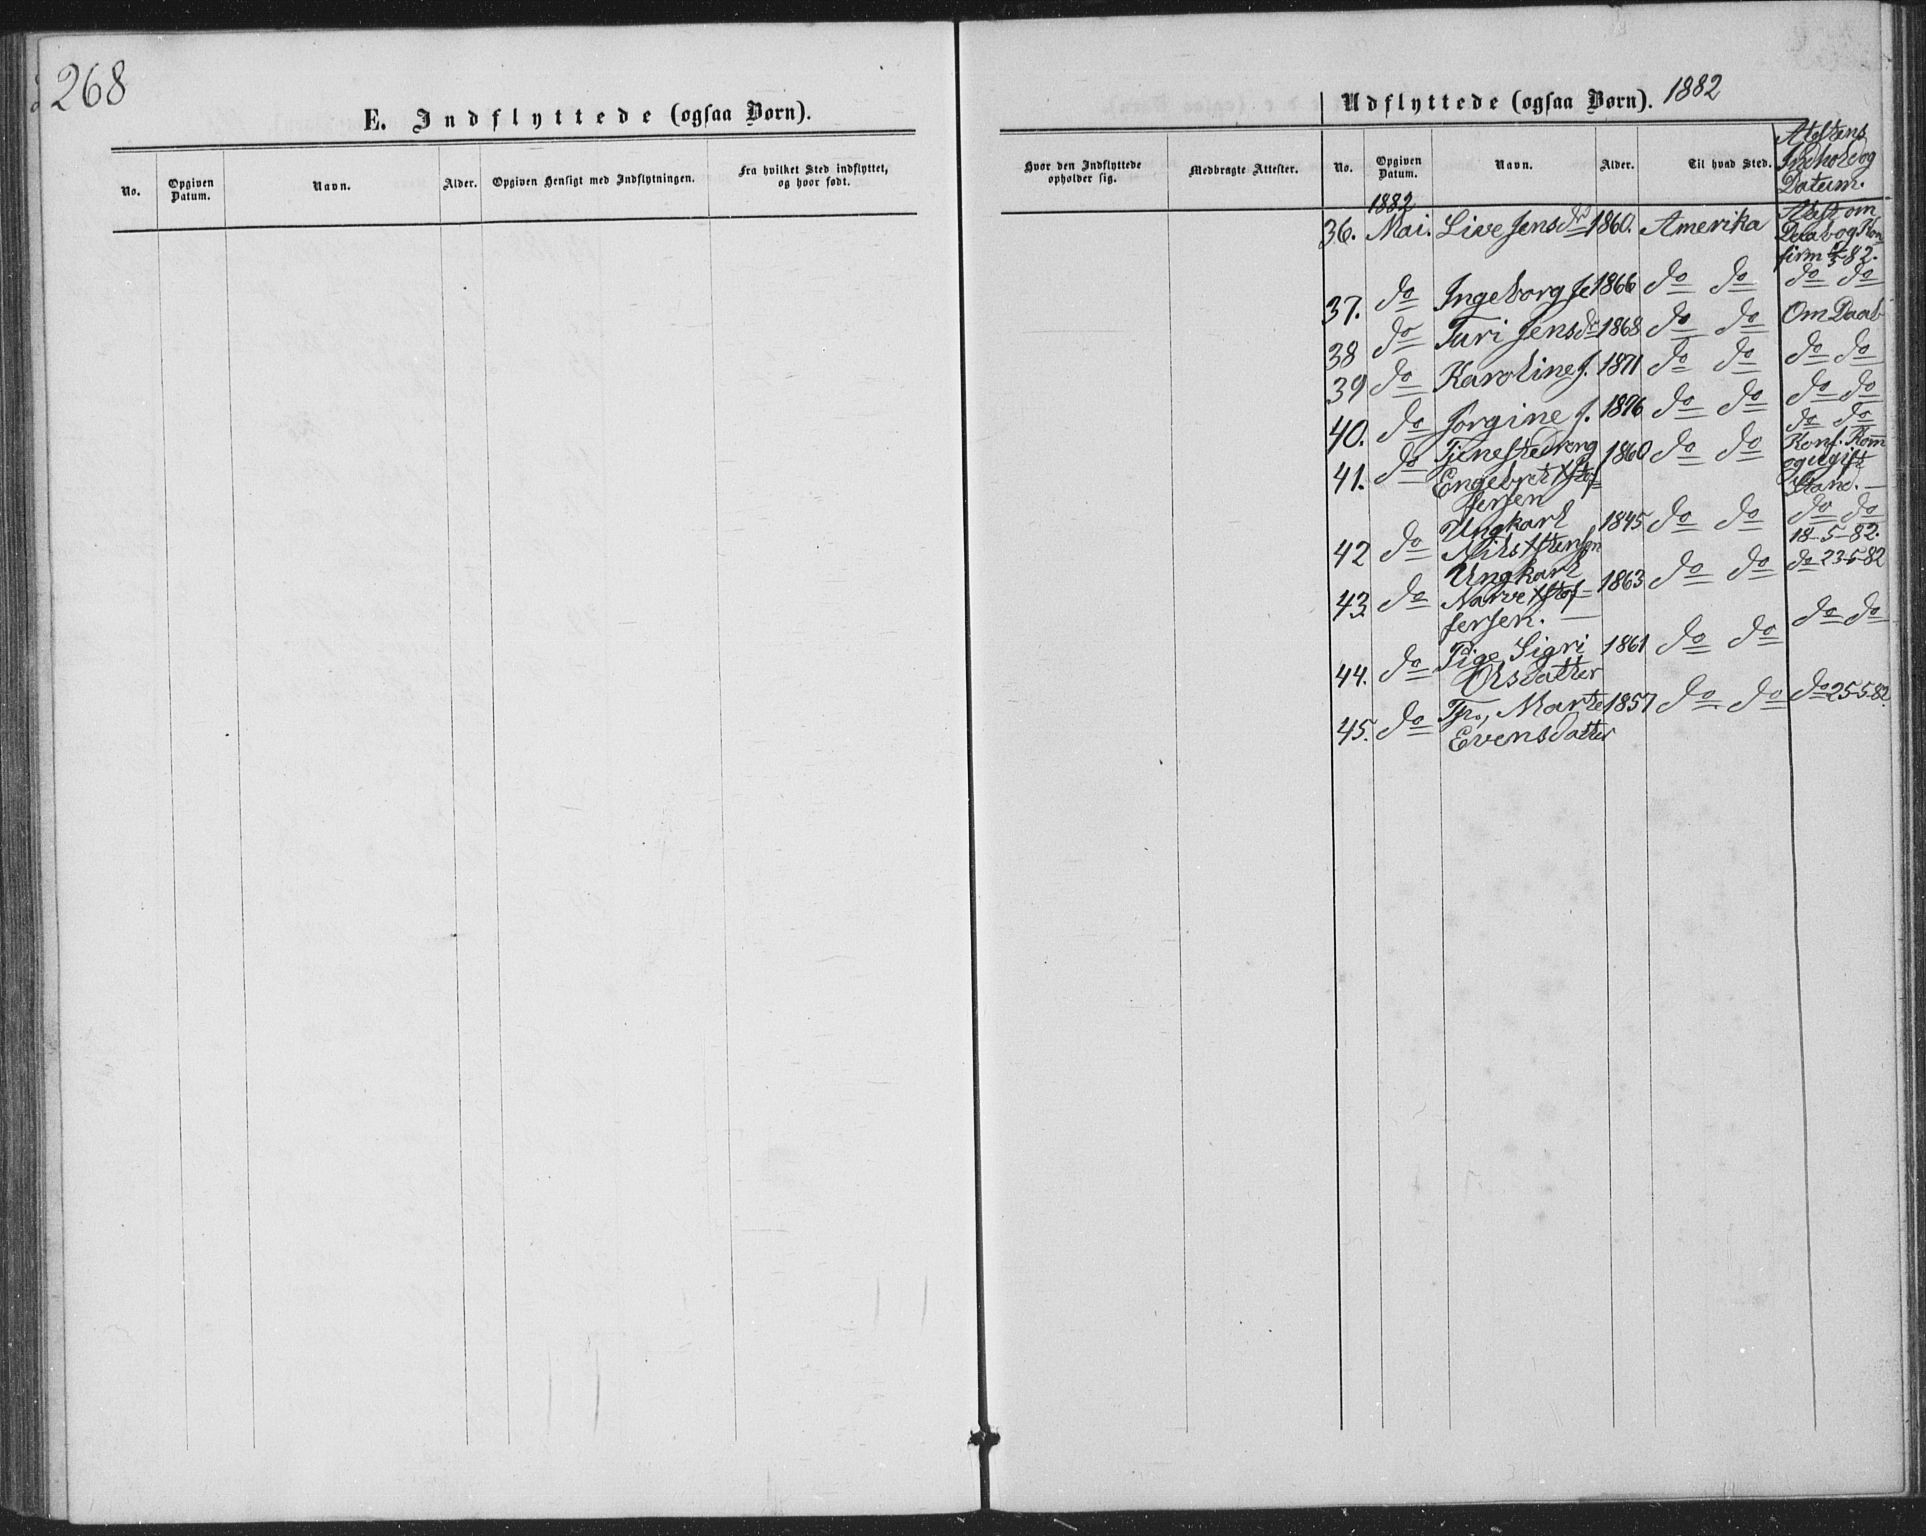 268
E. Indflyttede (ogsaa Børn).
No.
Opgiven Datum.
Navn.
Alder.
Opgiven Hensigt med Indflytningen.
Fra hvilket Sted indflyttet, og hvor født.
Hvor den Indflyttede opholder sig.
Medbragte Attester.
Udflyttede (ogsaa Børn). 1882
No.
Opgiven Datum.
Navn.
Alder.
Til hvad Sted.
Attestens Indhold og Datum.
1882
36. Mai. Live Jensdr 1860. Amerika Attest om
Daab og Kon
firm 82.
37. do Ingeborg Je 1866 do do do do
38 do Turi Jensdr 1868 do do Om Daab
39 do Karoline J. 1871 do do do do
40. do Jørgine J. 1876 do do do do
do do
41. do Tjenestedreng 1860 do do Konf. Kom
Engebret Xstof= og ugift
fersen Stand. —
42 do Ungkarl 1845 do do do do
Nils 18-5-82.
43. do Ungkarl 1863 do do do 23-5-82
Narve Xstof=
fersen. —
44. do Pige Sigri 1861 do do do do
Olsdatter
45. do Tp., Marte 1857 do. do do 25-5-82.
Evensdatter